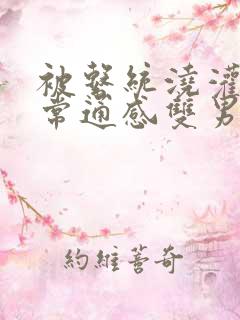 被繫統澆灌
常通感雙男
約維蓍奇